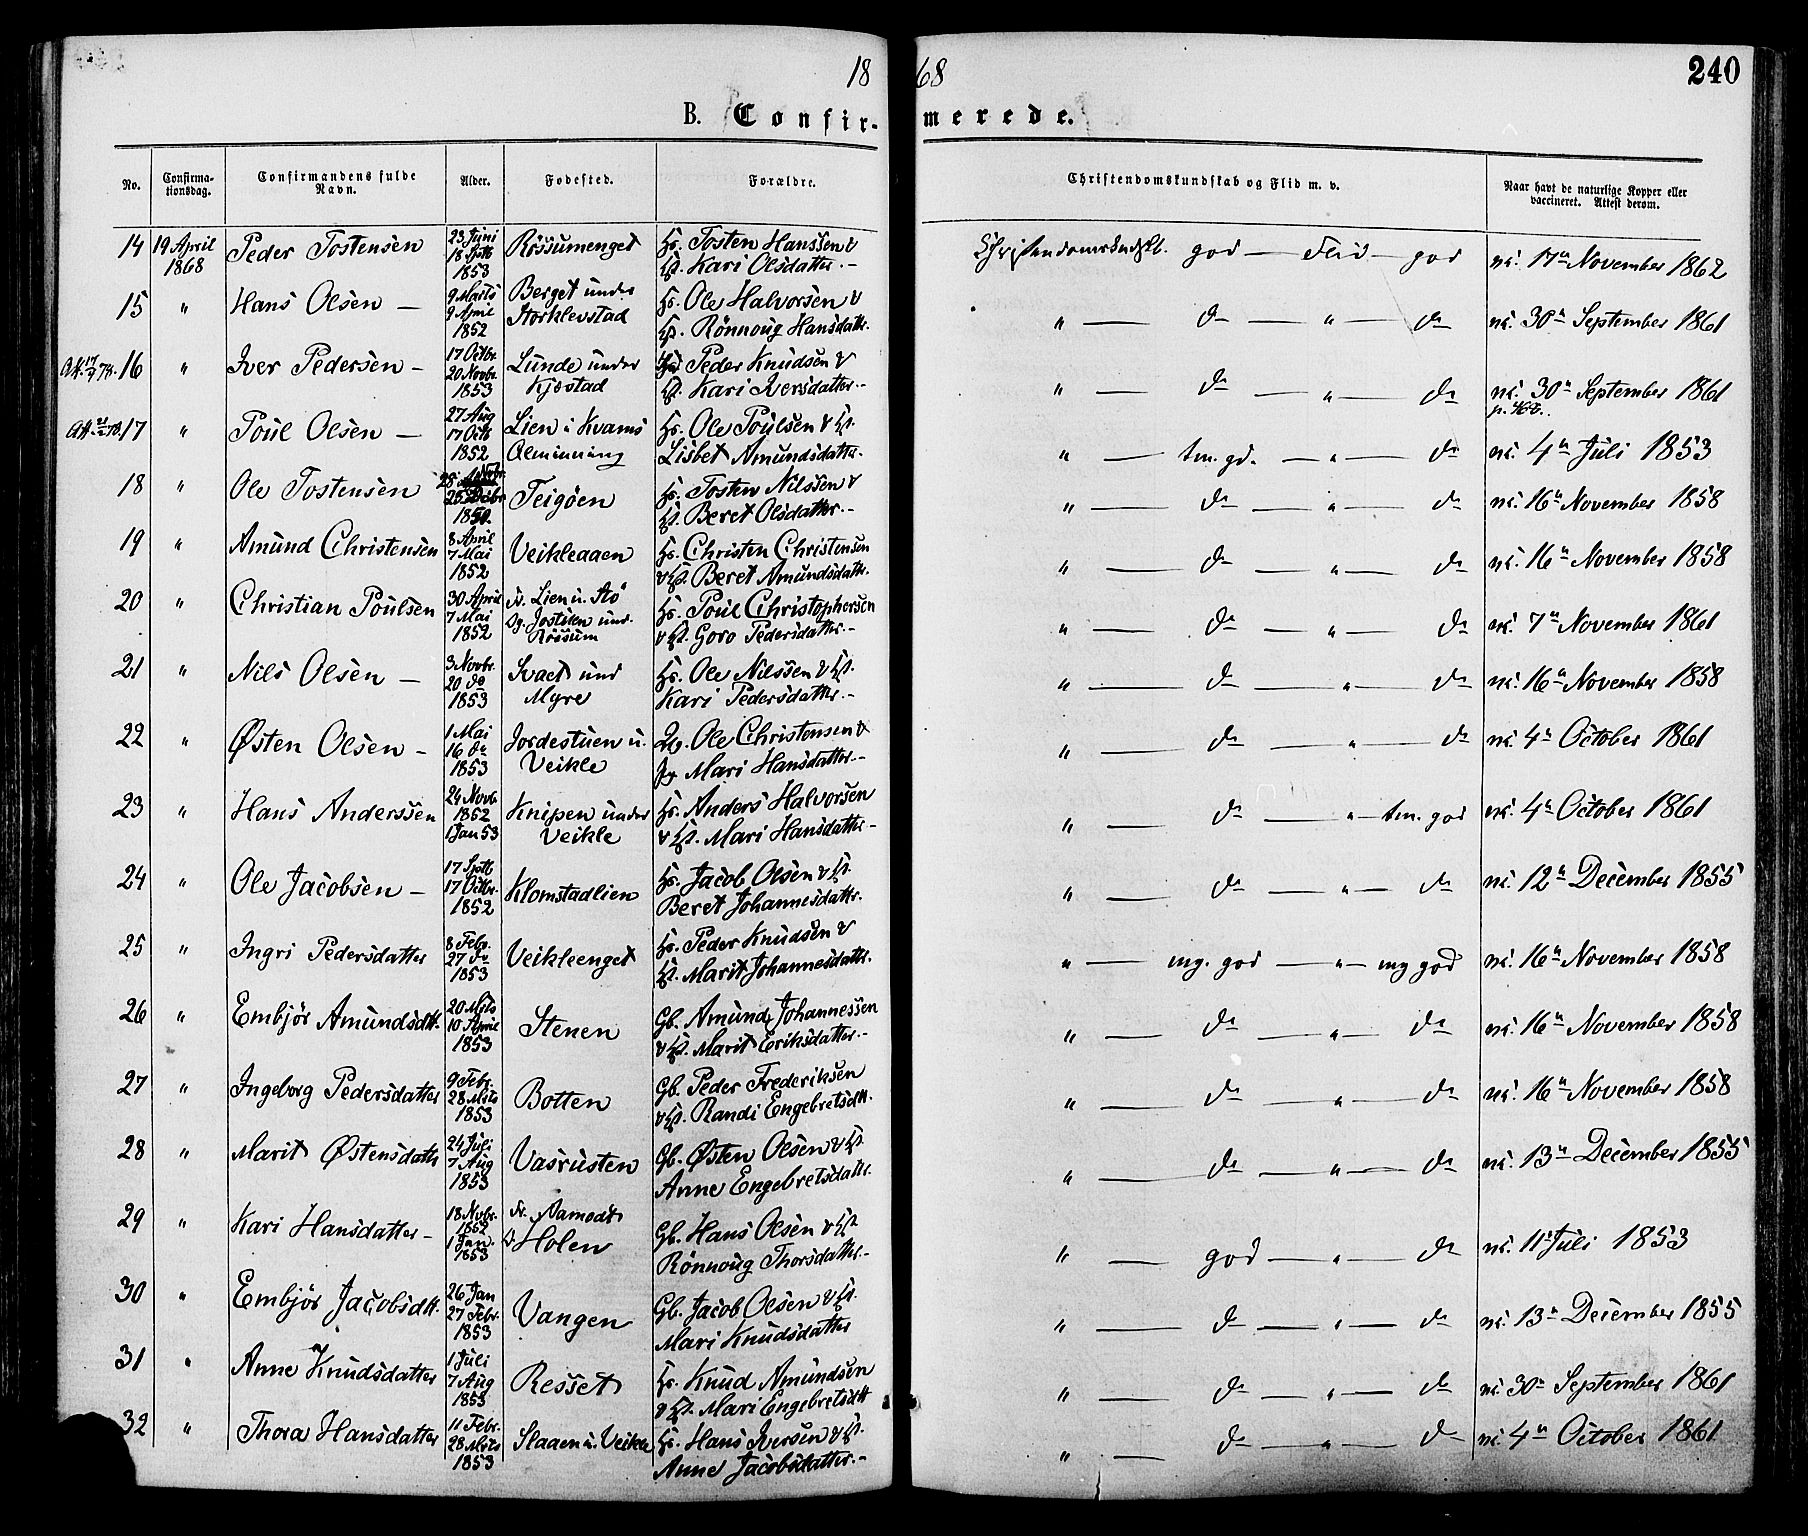 1868
240
B. Confirmerede.
No. Confirmationsdag. Confirmandens fulde Navn. Alder. Fødested. Forældre. Christendomskundskab og Flid m. v. Naar havt de naturlige Kopper eller vaccineret. Attest derom.
14 19 April 1868 Peder Tostensen 23 Juni 18 Sptb 1853 Rössumenget Hs. Tosten Hanssen & Kari Olsdatter. god — Flid — god 17n November 1862
15 " Hans Olsen — 9 Marts 9 April 1852 Berget under Storklevstad Hs. Ole Halvorsen & Rönnoug Hansdatr. " — do — " — do 30n September 1861
16 " Iver Pedersen — 17 Octbr. 20 Novbr. 1853 Lunde under Kjøstad Peder Knudsen & Kari Iversdatter. " — do — " — do 30n September 1861
17 " Poul Olsen — 27 Aug 17 Octb 1852 Lien i Kvams Almining Hs. Ole Poulsen & Lisbet Amundsdatter. " — tm. gd. — " — do 4n Juli 1853
18 " Ole Tostensen 1850. Teigöen Hs. Tosten Nilssen & Beret Olsdatter. " — do — " — do 16n November 1858
19 " Amund Christensen 8 April 7 Mai 1852 Veikleaaen Hs. Christen Christensen & Beret Amundsdatr. " — do — " — do 16n November 1858
20 " Christian Poulsen 30 April 7 Mai 1852 Lien u. Rössum Hs. Poul Christophersen & Goro Pedersdatter. " — do — " — do 7n November 1861
21 " Nils Olsen — 3 Novbr. 20 do 1853 Svaet und Myre Hs. Ole Nilssen & Kari Pedersdatter. " — do — " — do 16n November 1858
22 " Østen Olsen — 1 Mai 16 do 1853 Jordestuen u. Veikle Ole Christensen & Mari Hansdatter. " — do — " — do 4n October 1861
23 " Hans Anderssen 24 Novb 1852 1 Jan 53 Knipen under Veikle Hs. Anders Halvorsen & Mari Hansdatter " — do — " — tm. god 4n October 1861
24 " Ole Jacobsen — 17 Sptb 17 Octbr. 1852 Klomstadlien Hs. Jacob Olsen & Beret Johannesdatr. " — do — " — do 12n December 1855
25 " Ingri Pedersdatter 8 Febr. 27 do 1853 Veikleenget Hs. Peder Knudsen & Marit Johannesdatr. " — mg. god — " — mg god 16n November 1858
26 " Embjör Amundsdtt. 20 Mrts 10 April 1853 Stenen Gb. Amund Johannessen & Marit Eriksdatter. " — do — " — do 16n November 1858
27 " Ingeborg Pedersdatter 9 Febr. 28 Mrts 1853 Botten Gb. Peder Frederiksen & Randi Engebretsdtt. " — do — " — do 16n November 1858
28 " Marit Østensdatr 24 Juli 7 Aug 1853 Vasrusten Gb. Østen Olsen & Anne Engebretsdatr. " — do — " — do 13n December 1855
29 " Kari Hansdatter — 18 Novbr. 1852 1 Jan. 1853 Aamodt Holen Gb. Hans Olsen & Rönnoug Thorsdatter. " — god — " — do 11n Juli 1853
30 " Embjör Jacobsdtt. 26 Jan 27 Febr. 1853 Vangen Gb. Jacob Olsen & Mari Knudsdatter " — do — " — do 13n December 1855
31 " Anne Knudsdatter 1 Juli 7 Aug 1853 Resset Hs. Knud Amundsen & Mari Engebretsdtt " — do — " — do 30n September 1861
32 " Thora Hansdatter 11 Febr. 28 Mrts 1853 Slaaen u. Veikle Hs. Hans Iversen & Anne Jacobsdatter. " — do — " — do 4n October 1861